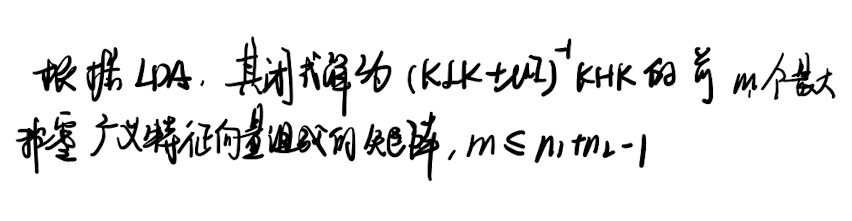 根据LDA，其闭式解为 (KLK+μI)⁻¹KHK 的前 m个最大
非零广义特征向量组成的矩阵，m ≤ n₁+n₂-1